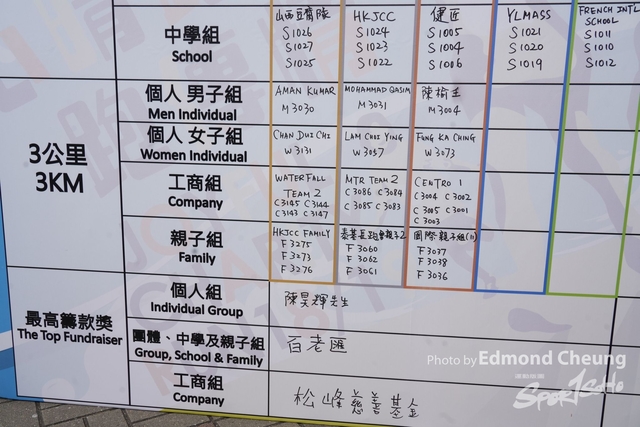 中學組
School
山西豆腐隊
S1026
S1027
S1025
HKJCC
S1024
S1023
S1022
健匠
S1005
S1004
S1006
YLMASS
S1021
S1020
S1019
FRENCH INTL
SCHOOL
S1011
S1010
S1012
3公里
3KM
個人 男子組
Men Individual
AMAN KUMAR
M3030
MOHAMMAD QASIM
M3031
M3004
個人 女子組
Women Individual
CHAN DUI CHI
W3131
LAM CHOI YING
W3057
FUNG KA CHING
W3073
工商組
Company
WATERFALL
TEAM 2
C3145 C3144
C3143 C3147
MTR TEAM 2
C3086 C3084
C3085 C3083
CENTRO 1
C3004 C3002
C3005 C3001
C3003
親子組
Family
HKJCC FAMILY
F3275
F3273
F3276
F3060
F3062
F3061
國際親子組(11)
F3037
F3038
F3036
最高籌款獎
The Top Fundraiser
個人組
Individual Group
陳昊輝先生
團體、中學及親子組
Group, School & Family
百老匯
工商組
Company
松峰慈善基金
Photo by Edmond Cheung
SPORTSOHO